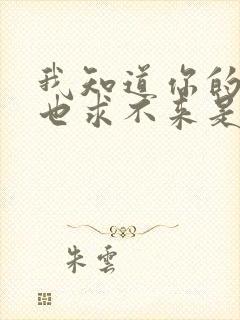 我知道你的
也求不来是
朱雲